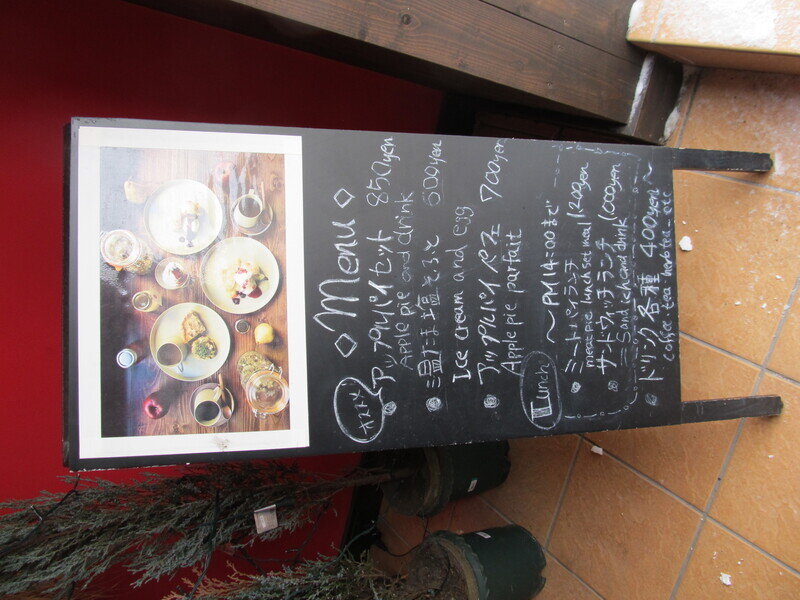 ◇ Menu ◇
オススメ
アップルパイセット 850yen
Apple pie and drink
温たま塩そふと 500yen
Ice cream and egg
アップルパイパフェ 700yen
Apple pie parfait
Lunch
～PM14:00まで
ミートパイランチ 1,200yen
meat pie lunch set meal
サンドウィッチランチ 1,000yen
Sandwich and drink
ドリンク各種 400yen～
coffee・tea・herb tea… etc